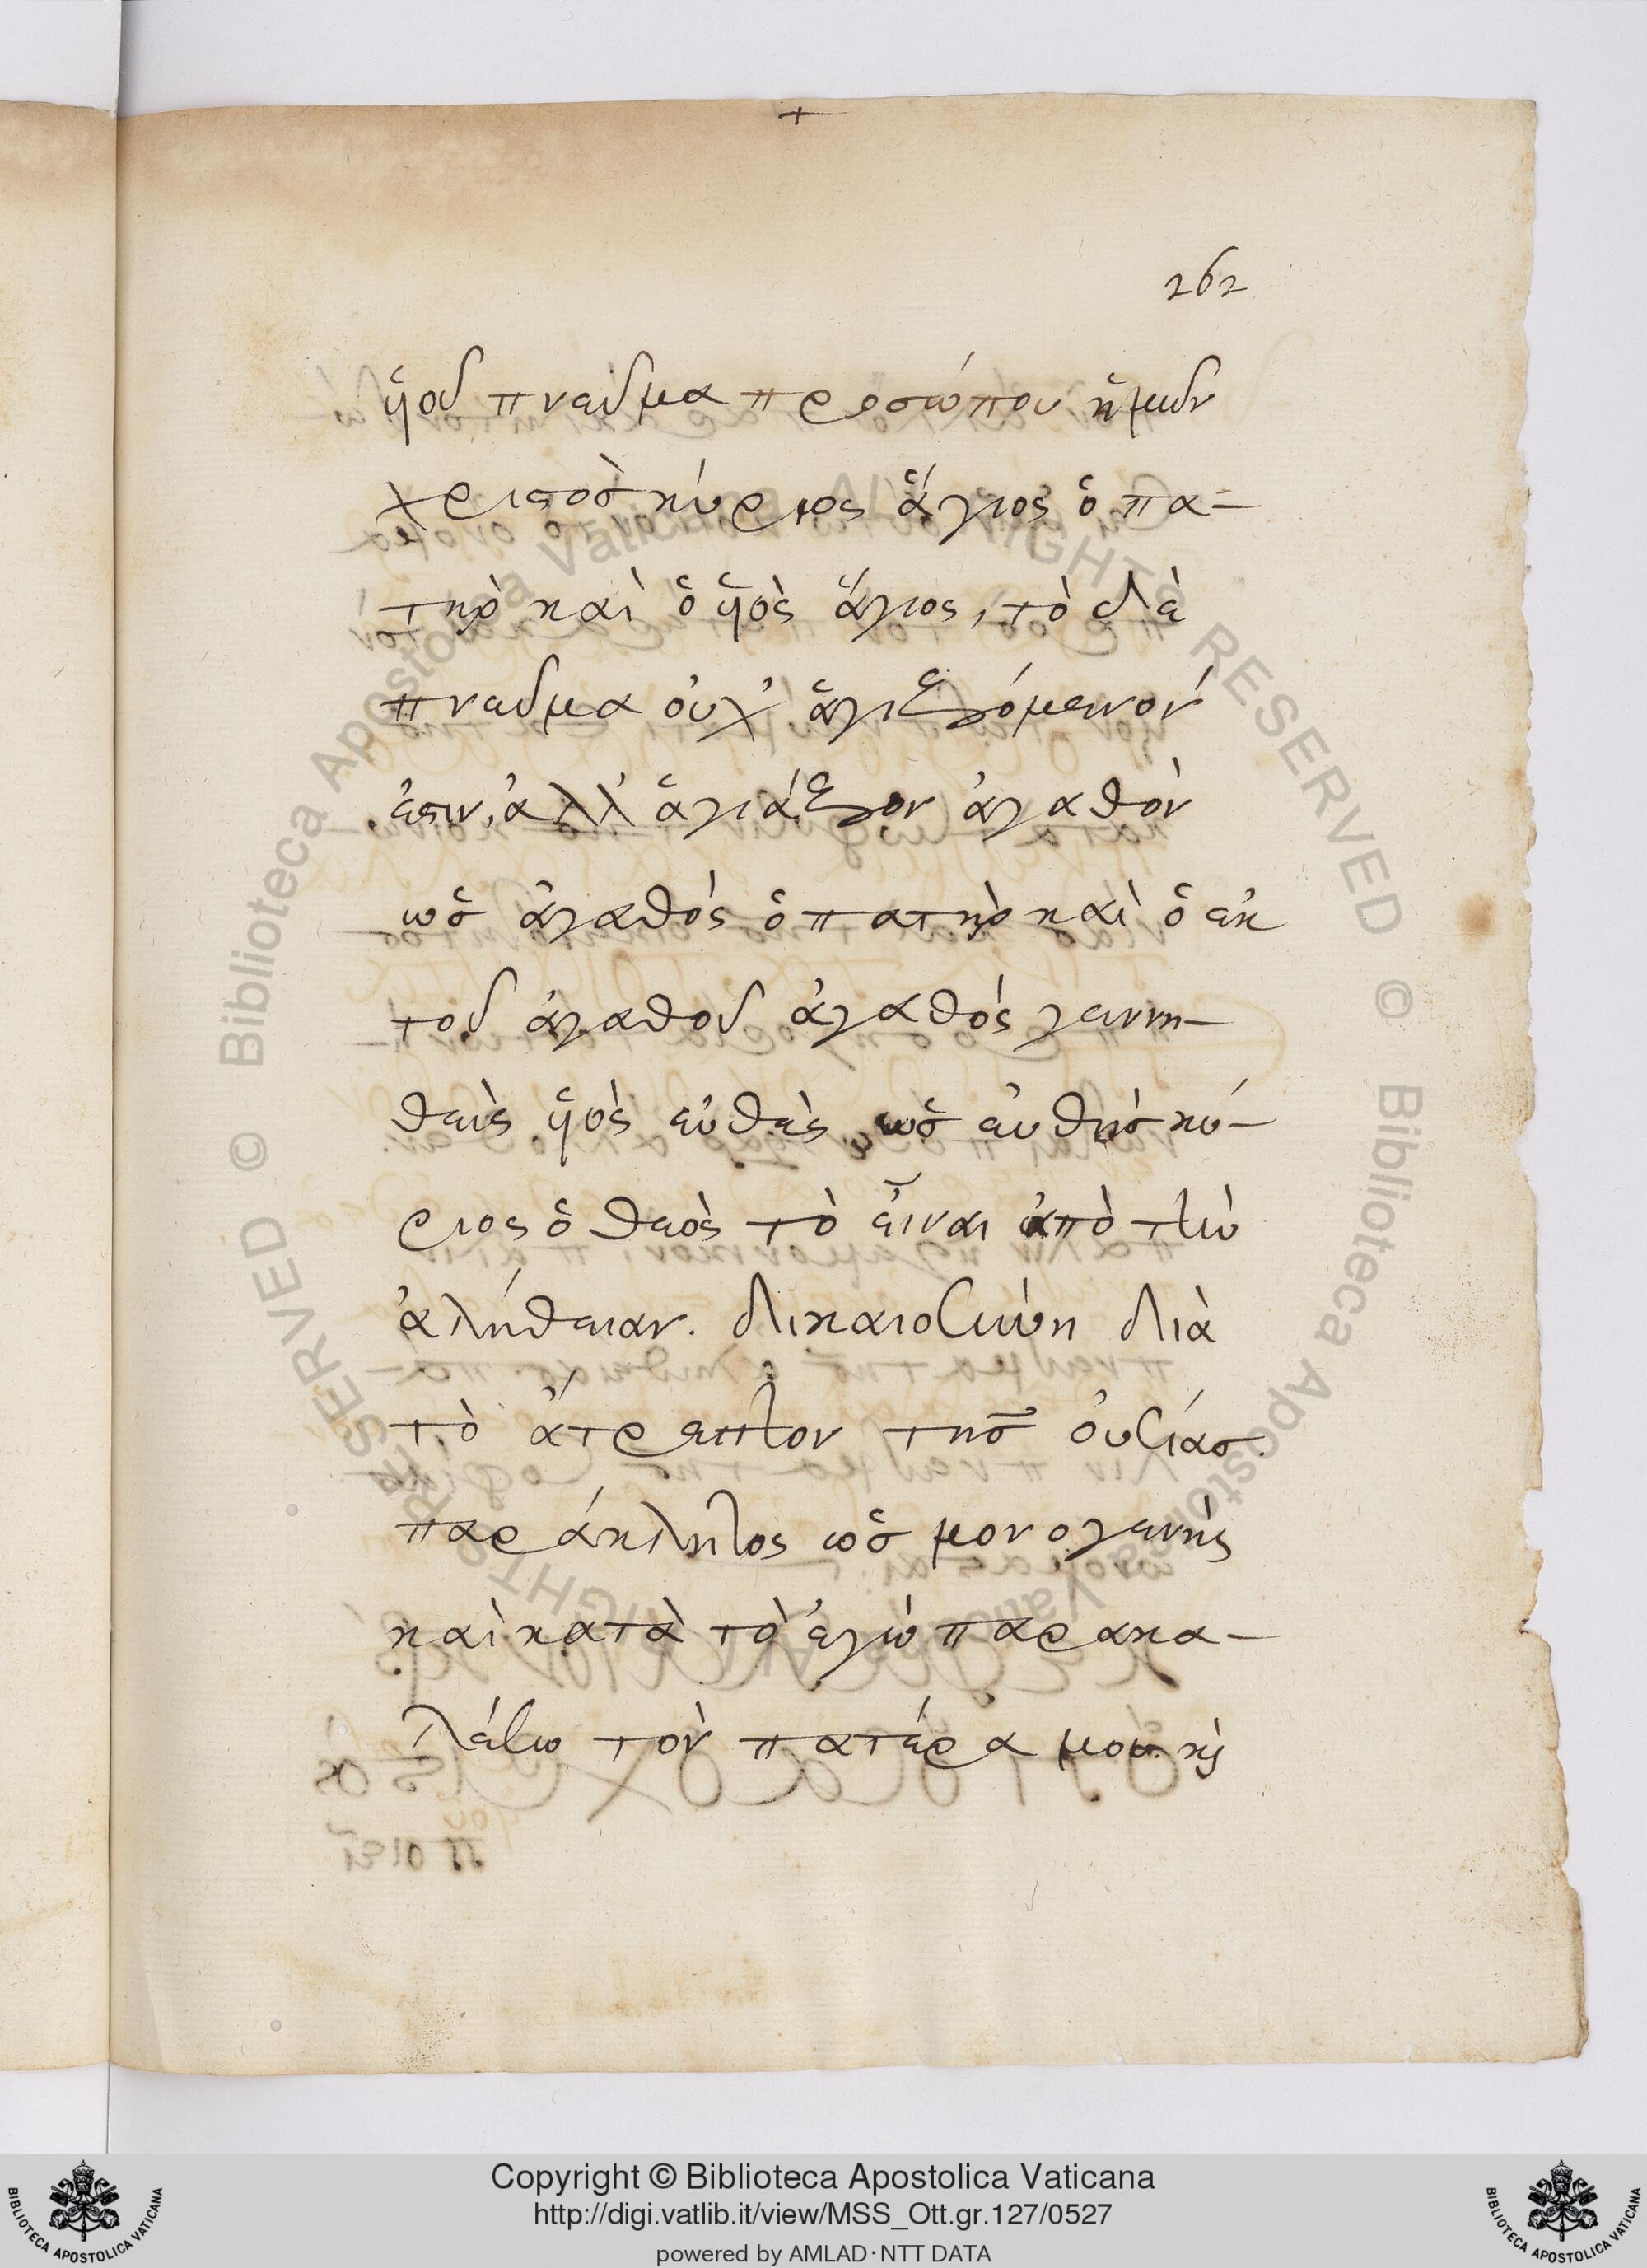 +
262
ὑοῦ πνεῦμα προσώπου ἡμῶν
χριστὸσ κύριος ἅγιος ὁ πα-
τὴρ καὶ ὁ ὑὸς ἅγιος, τὸ δὲ
πνεῦμα οὐχ' ἁγιαζόμενόν
ἐστιν, ἀλλ' ἁγιάζον ἀγαθὸν
ὡσ ἀγαθός ὁ πατὴρ καὶ ὁ ἐκ
τοῦ ἀγαθοῦ ἀγαθός γεννη-
θεὶς ὑὸς εὐθὲς ὡσ εὐθὴσ κύ-
ριος ὁ θεὸς τὸ εἶναι ἀπὸ τὴν
ἀλήθειαν. δικαιοσύνη διὰ
τὸ ἄτρεπτον τῆσ οὐσίασ.
παράκλητος ὡσ μονογενὴς
καὶ κατὰ τὸ ἐγὼ παρακα-
λέσω τὸν πατέρα μου κὶ
© Biblioteca Apostolica Vaticana ALL RIGHTS RESERVED
© Biblioteca Apostolica Vaticana ALL RIGHTS RESERVED
Copyright © Biblioteca Apostolica Vaticana
http://digi.vatlib.it/view/MSS_Ott.gr.127/0527
powered by AMLAD·NTT DATA
BIBLIOTECA APOSTOLICA VATICANA
BIBLIOTECA APOSTOLICA VATICANA